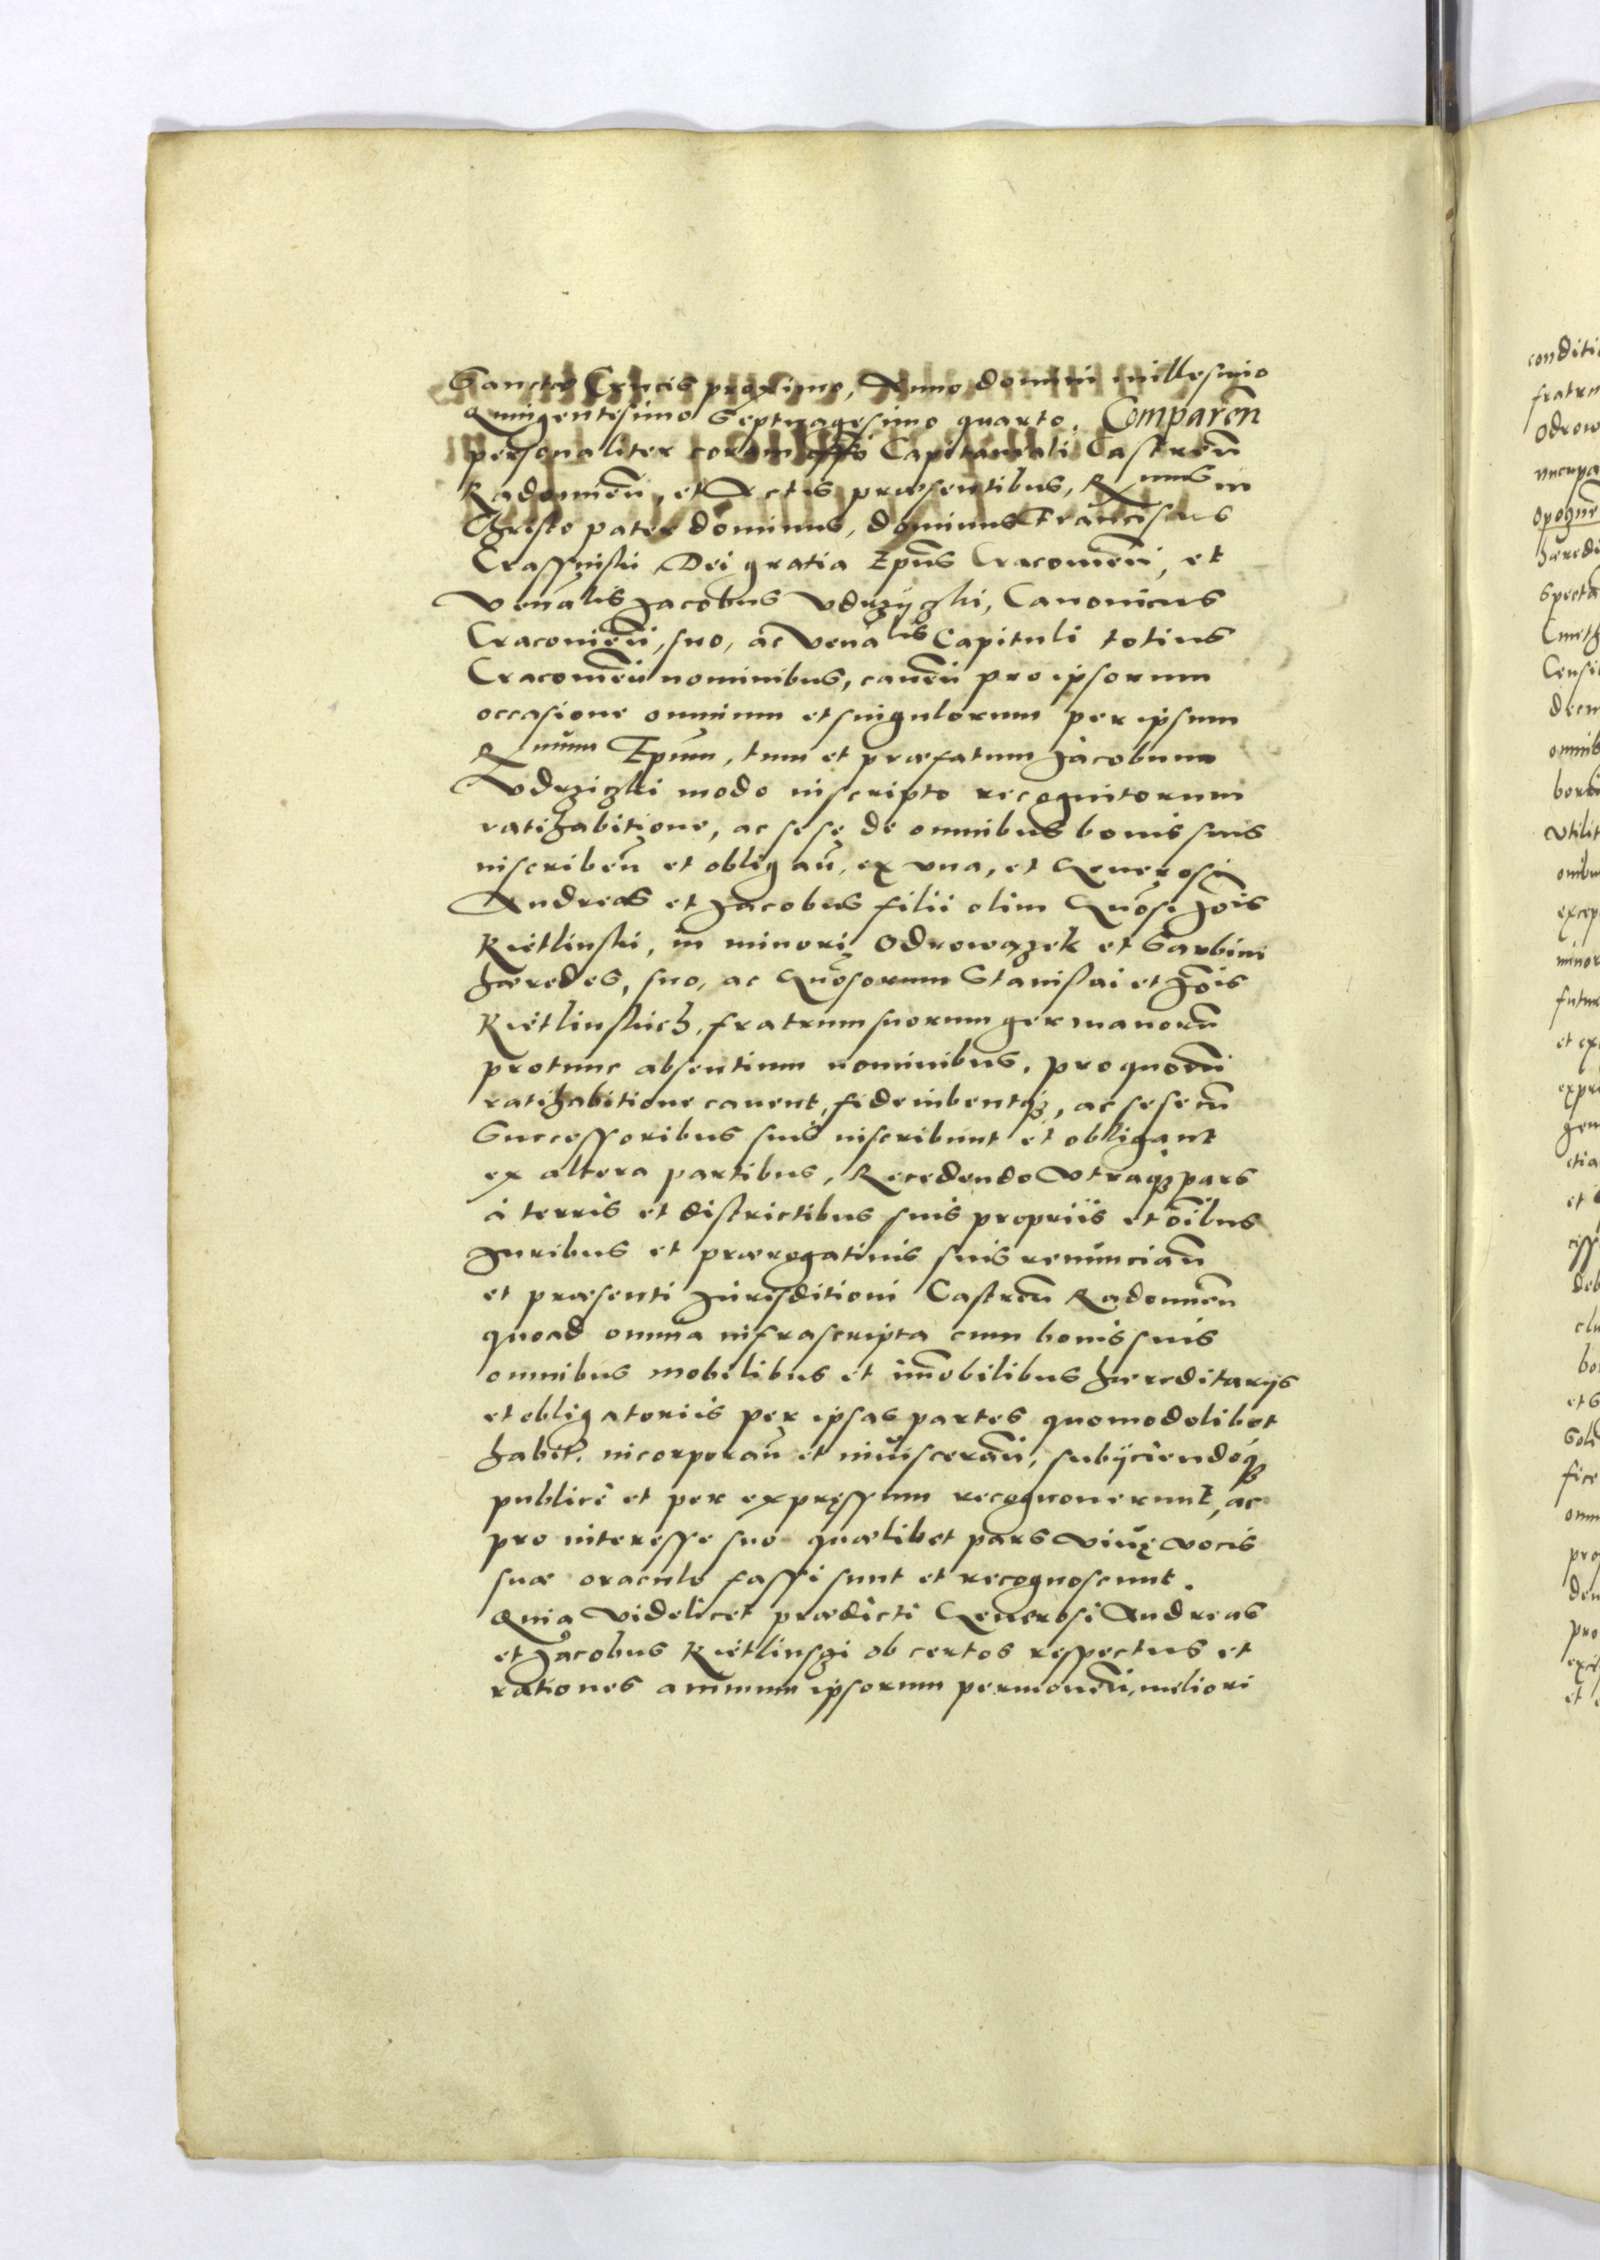 Sanctæ Crucis proximo, Anno domini millesimo
Quingentesimo Septuagesimo quarto. Comparen̄
personaliter coram offō Capitaneali Castren̄
Radomien̄, et Actis præsentibus, R mus in
Christo pater dominus, dominus Franciscus
Crassinski Dei gratia Epūs Cracouien̄, et
Venālis Jacobus Vdrzÿczki, Canonicus
Cracouien̄, suo, ac Venālis Capituli totius
Cracouien̄ nominibus, cauen̄ pro ipsorum
occasione omnium et singulorum per ipsum
R mum Epūm, tum et præfatum Jacobum
Vdrziczki modo inscripto recognitorum
ratihabitione, ac sese de omnibus bonis suis
inscriben̄ et obligan̄, ex vna, et Generosi
Andreas et Jacobus filii olim Gnōsi Joīs
Kietlinski, in minori Odrowązek et Garbini
hæredes, suo, ac Gnōsorum Stanislai et Joīs
Kietlinskich, fratrum suorum germanorū
protunc absentium nominibus, pro quorū
ratihabitione cauent, fideiubentq3, ac sese cū
Successoribus suis inscribunt et obligant
ex altera partibus, Recedendo vtraq3 pars
à terris et districtibus suis propriis et oībus
Juribus et prærogatiuis suis renuncian̄
et præsenti Jurisditioni Castren̄ Radomien̄
quoad omnia infrascripta cum bonis suis
omnibus mobilibus et im̄obilibus hæreditarijs
et obligatoriis per ipsas partes quomodolibet
habit. incorporan̄ et inuisceran̄, subÿciendoq3
publicè et per expressum recognouerunt, ac
pro interesse suo quælibet pars viuę vocis
suæ oraculo fassi sunt et recognoscunt.
Quia videlicet prædicti Generosi Andreas
et Jacobus Kietlinsczi ob certos respectus et
rationes animum ipsorum permouen̄, meliori